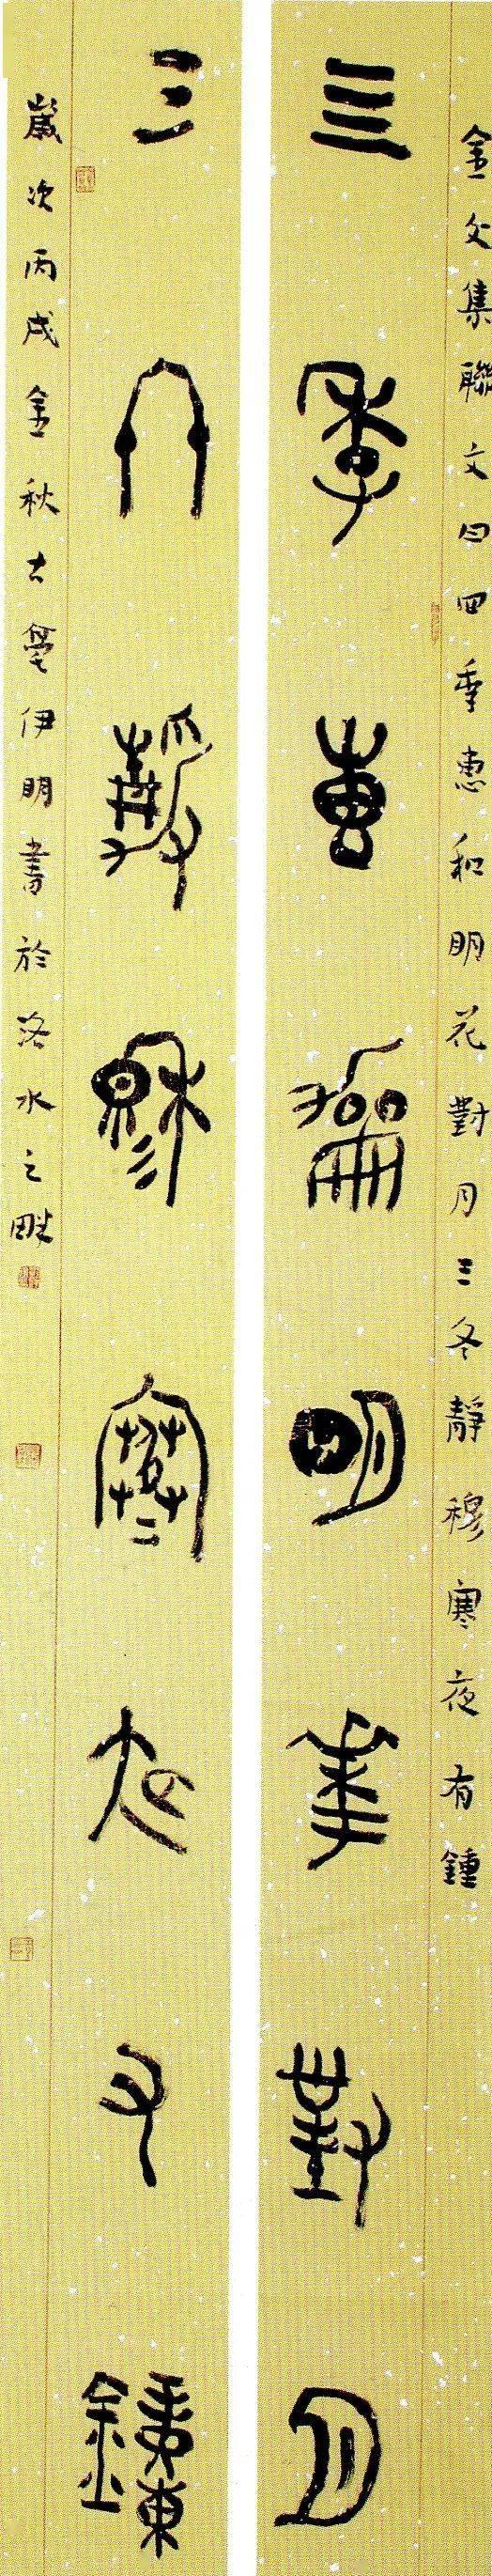 金文集聯文曰四季惠和明花對月三冬靜穆寒夜有鍾
亖季惠龢明華對月
三冬靜穆寒夜又鍾
歲次丙戌金秋古亳伊明書於洛水之畔